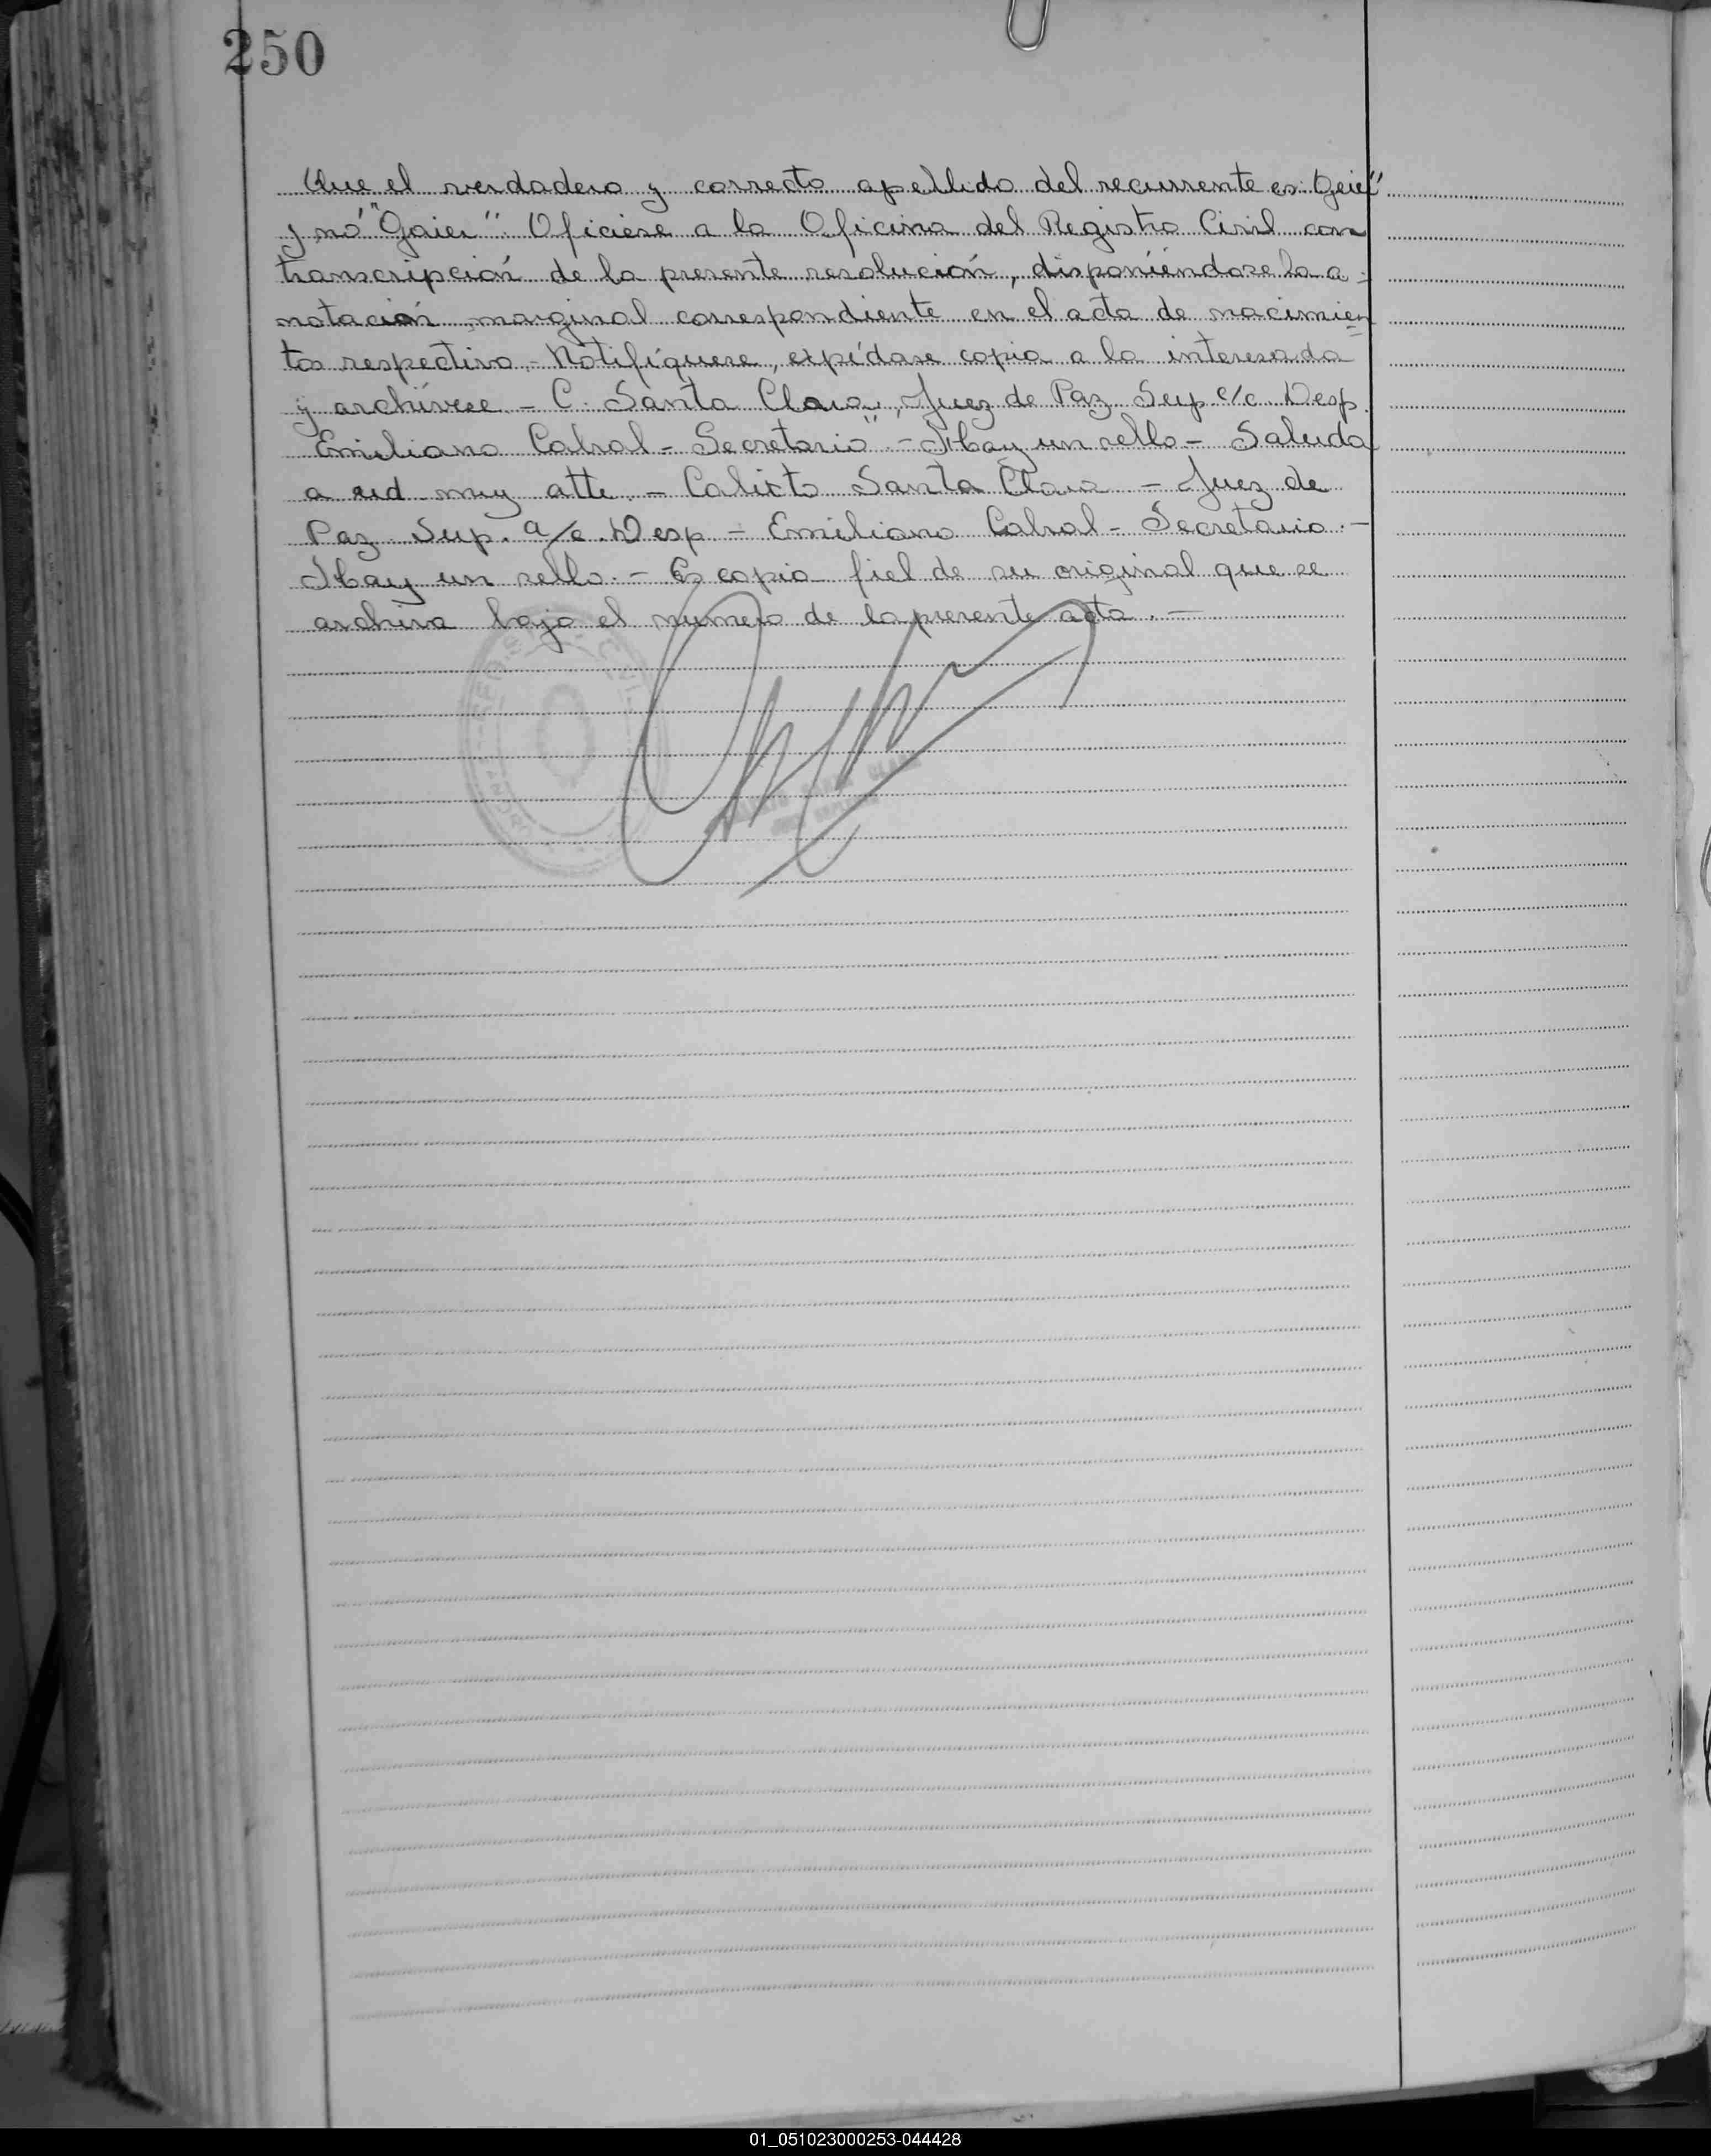 250
Que el verdadero y correcto apellido del recurrente es: Geier"
y nó "Gaier". Oficiése a la Oficina del Registro Civil con
transcripción de la presente resolución, disponiéndose la a-
notación marginal correspondiente en el acta de nacimien
tos respectiva.- Notifíquese, expídase copia a la interesada
y archívese - C. Santa Clara, Juez de Paz Sup c/c. Desp.
Emiliano Cabral - Secretario". - Hay un sello - Saluda
a ud muy atte. - Calixto Santa Clara - Juez de
Paz Sup. a/c. Desp - Emiliano Cabral - Secretario. -
Hay un sello. - Es copia fiel de su original que se
archiva bajo el número de la presente acta. -
01_051023000253-044428